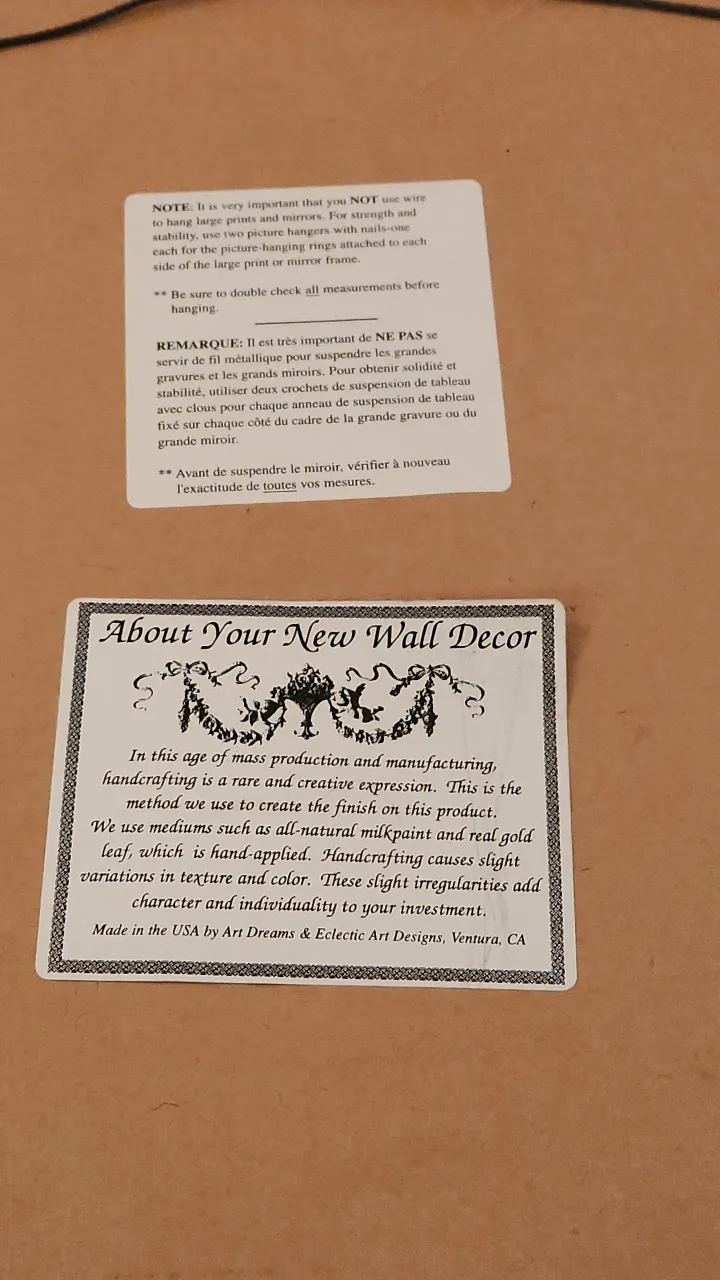 NOTE: It is very important that you NOT use wire
to hang large prints and mirrors. For strength and
stability, use two picture hangers with nails-one
each for the picture-hanging rings attached to each
side of the large print or mirror frame.
** Be sure to double check all measurements before
hanging.
REMARQUE: Il est très important de NE PAS se
servir de fil métallique pour suspendre les grandes
gravures et les grands miroirs. Pour obtenir solidité et
stabilité, utiliser deux crochets de suspension de tableau
avec clous pour chaque anneau de suspension de tableau
fixé sur chaque côté du cadre de la grande gravure ou du
grande miroir.
** Avant de suspendre le miroir, vérifier à nouveau
l'exactitude de toutes vos mesures.
About Your New Wall Decor
In this age of mass production and manufacturing,
handcrafting is a rare and creative expression. This is the
method we use to create the finish on this product.
We use mediums such as all-natural milkpaint and real gold
leaf, which is hand-applied. Handcrafting causes slight
variations in texture and color. These slight irregularities add
character and individuality to your investment.
Made in the USA by Art Dreams & Eclectic Art Designs, Ventura, CA